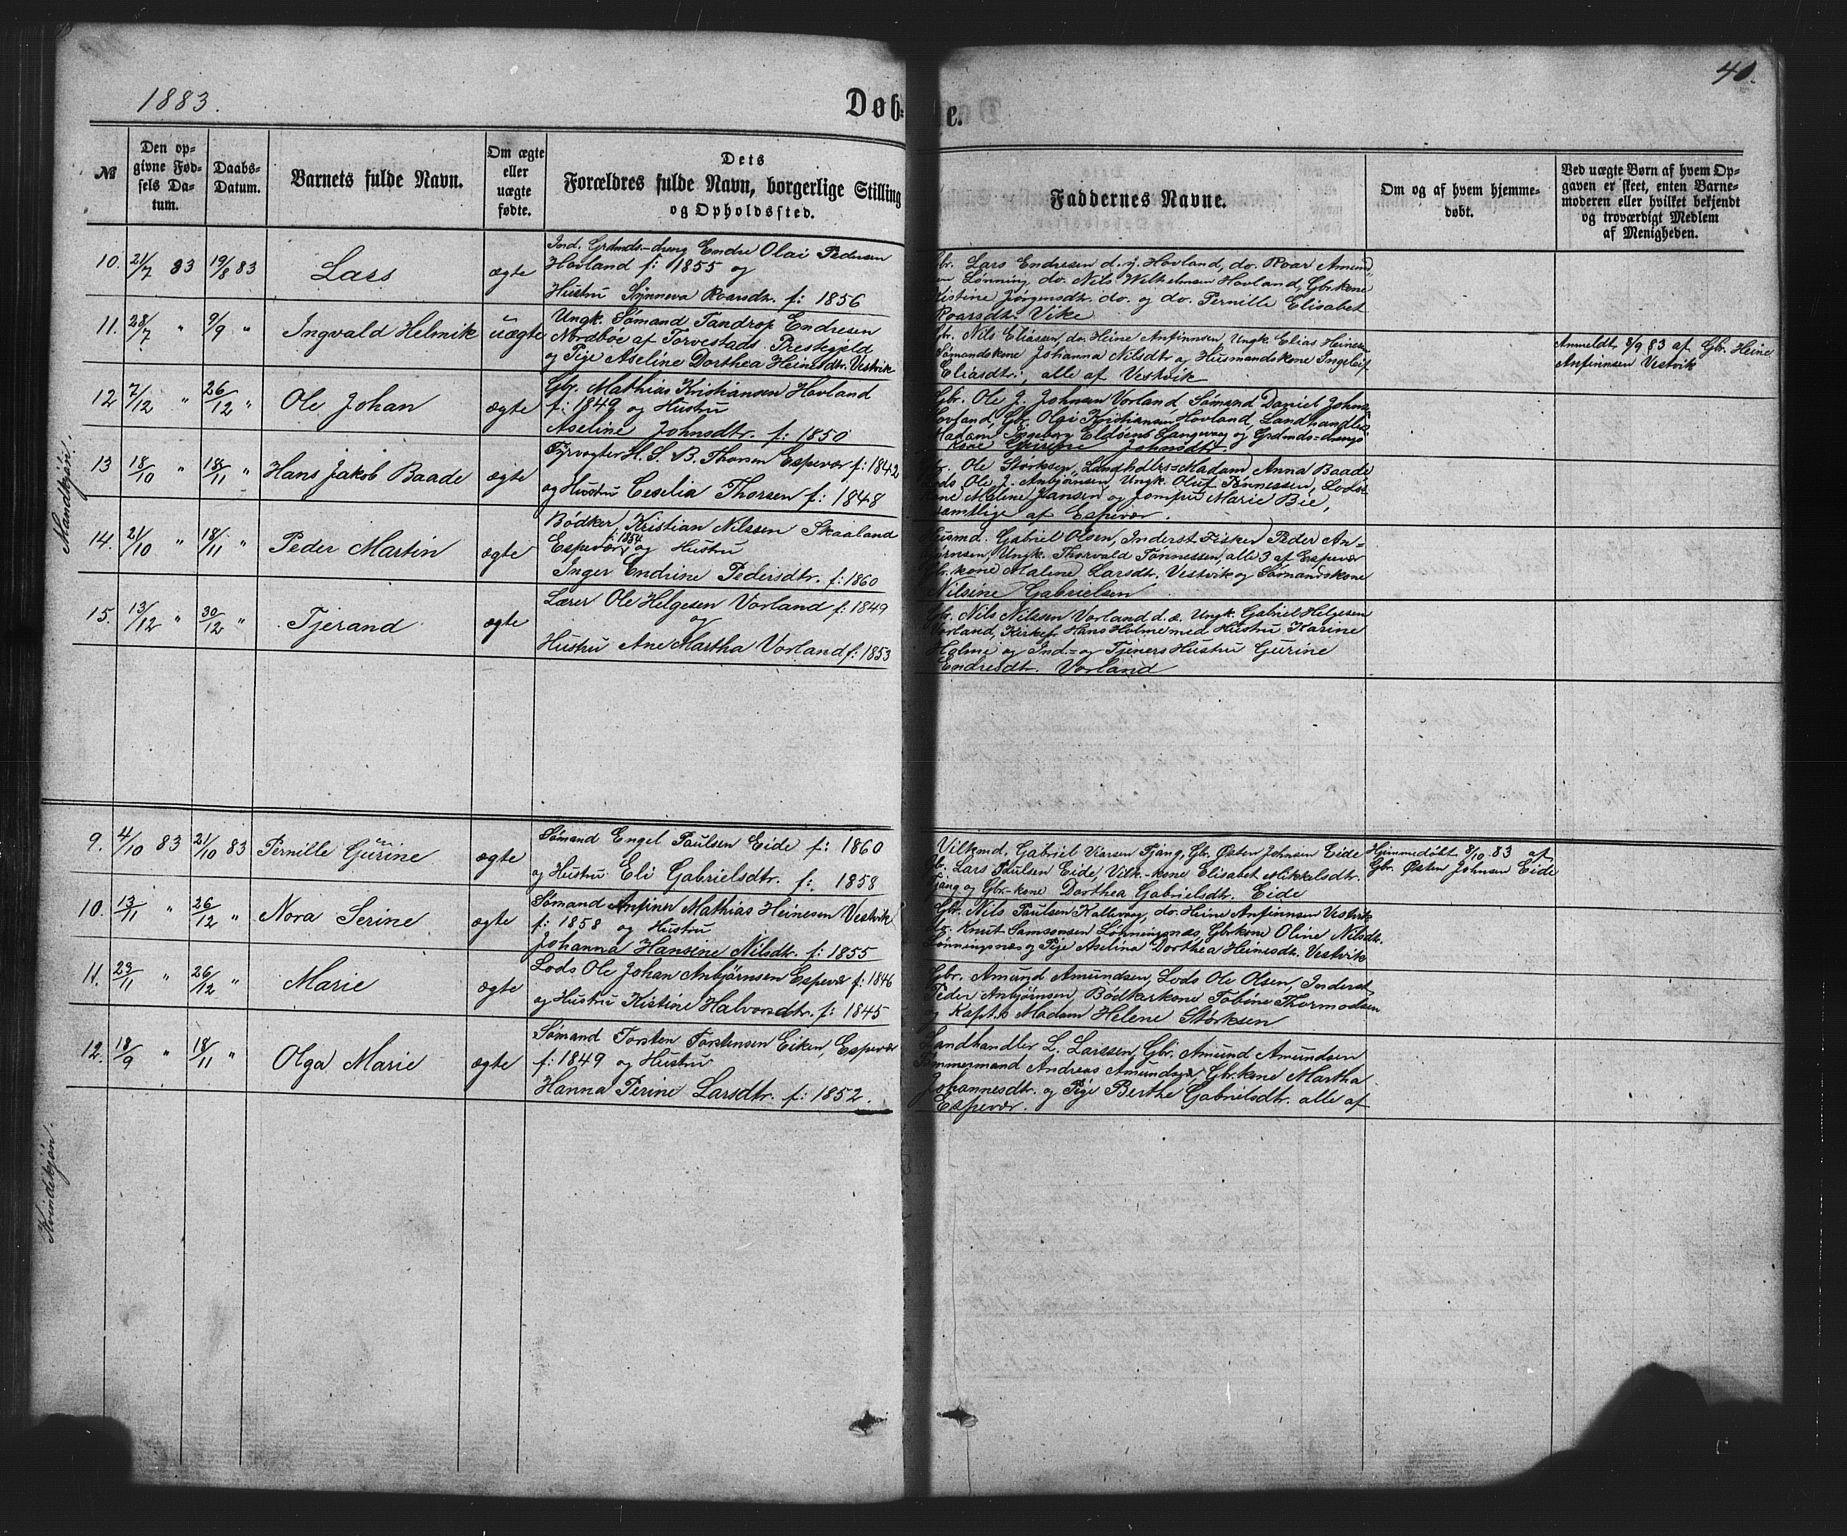 1883.
Døb-
te.
40.
№
Den op-
givne Fød-
sels Da-
tum.
Daabs-
Datum.
Barnets fulde Navn.
Om ægte
eller
uægte
fødte.
Dets
Forældres fulde Navn, borgerlige Stilling
og Opholdssted.
Faddernes Navne.
Om og af hvem hjemme-
døbt.
Ved uægte Børn af hvem Op-
gaven er skeet, enten Barne-
moderen eller hvilket bekjendt
og troværdigt Medlem
af Menigheden.
Mandkjøn.
10. 21/7 83 19/8 83 Lars ægte
Ind. Grdmds-dreng Endre Olai Pedersen
Hovland f: 1855 og
Hustru Synneva Roarsdtr. f: 1856
Gbr. Lars Endresen d. y. Hovland, do. Roar Amund
Lønning, do. Nils Wilhelmsen Hovland, Gbr.kone
Kistine Jørgensdtr. do. og do. Pernille Elisabet
Roarsdtr. Vike
11. 28/7 " 9/9 " Ingvald Helmik uægte
Ungk. Sømand Tandrop Endresen
Nordbøe af Torvestads Prestegjeld
og Pige Aseline Dorthea Heinesdtr. Vestvik
Gbr. Nils Eliassen, do. Heine Anfinnsen Ungk. Elias Heinesen
Sømandskone Johanna Nilsdtr og Husmandskone Ingeleif
Eliasdtr., alle af Vestvik
Anmeldt 8/9 83 af Gbr. Heine
Anfinnsen Vestvik
12 7/12 " 26/12 " Ole Johan ægte
Gbr. Mathias Kristiansen Hovland
f: 1849 og Hustru
Aseline Johnsdtr. f: 1850
Gbr. Ole J. Johnsen Vorland, Sømand Daniel Johns.
Hovland, Gbr. Olai Kristiansen Hovland, Landhandler
Madam Ingeborg Eldsens Langevaag og Grdmds-drengs
kone Gurine Johnsdtr.
13 18/10 " 18/11 " Hans Jakob Baade ægte
Fyrvogter H. S. B. Thorsen Espevær f: 1842
og Hustru Cecelia Thorsen f: 1848
Gbr. Ole Størksen, Landhdlrs=Madam Anna Baade
Lods Ole J. Anbjørnsen Ungk. Oluf Tønnessen, Lods
kone Malene Jansen og Jomfru Marie Bie,
samtlige af Espevær.
14. 21/10 " 18/11 " Peder Martin ægte
Bødker, Kristian Nilssen Skaaland
Espevær f: 1854 og Hustru
Inger Endrine Pedersdtr. f: 1860
Husmd. Gabriel Olsen, Inderst Fisker Peder An-
bjørnsen, Ungk. Thorvald Tønnessen, alle 3 af Espevær
Gbr.kone Malene Larsdtr. Vestvik og Sømandskone
Nilsine Gabrielsen
15. 13/12 " 30/12 " Tjerand ægte
Lærer Ole Helgesen Vorland f: 1849
og
Hustru Ane Martha Vorland f: 1853
Gbr. Nils Nilssen Vorland d. æ. Ungk. Gabriel Helgesen
Vorland, Kirkes. Hans Holme med Hustru Karine
Holme og Ind.= og Tjeners Hustru Gurine
Endresdtr. Vorland
Kvindekjøn.
9. 4/10 83 21/10 83 Pernille Gurine ægte
Sømand Engel Paulsen Eide f: 1860
og Hustru Eli Gabrielsdtr. f: 1858
Vilkmd. Gabriel Viarsen Tjong, Gbr. Østen Johnsen Eide
Gbr. Lars Paulsen Eide, Vilk.-kone Elisabet Mikkelsdtr.
Tjong og Gbr-kone Dorthea Gabrielsdtr. Eide
Hjemmedøbt 8/10 83 af
Gbr. Østen Johnsen Eide
10. 13/11 " 26/12 " Nora Serine ægte
Sømand Anfinn Mathias Heinesen Vestvik
f: 1858 og Hustru
Johanna Hansine Nilsdtr. f: 1855
Gbr. Nils Paulsen Kallevaag, do. Heine Anfinnsen Vestvik
do. Knut Samsonsen Lønningsnæs, Gbrkone Oline Nilsdtr.
Lønningsnæs og Pige Aselina Dorthea Heinesdtr. Vestvik
11. 23/11 " 26/12 " Marie ægte
Lods Ole Johan Anbjørnsen Espevær f: 1846
og Hustru Kistine Halvorsdtr. f: 1845
Gbr. Amund Amundsen, Lods Ole Olsen, Inderst
Peder Anbjørnsen, Bødkerkone Tobine Thormodsen
og Kapt.s Madam Helene Størksen
12. 18/9 " 18/11 " Olga Marie ægte
Sømand Torsten Torstensen Eiken, Espevær
f: 1849 og Hustru
Hanna Perine Larsdtr. f: 1852.
Landhandler L. Larssen, Gbr. Amund Amundsen
Tømmermand Andreas Amundsen, Gbr.kone Martha
Johannesdtr. og Pige Berthe Gabrielsdtr. alle af
Espevær.